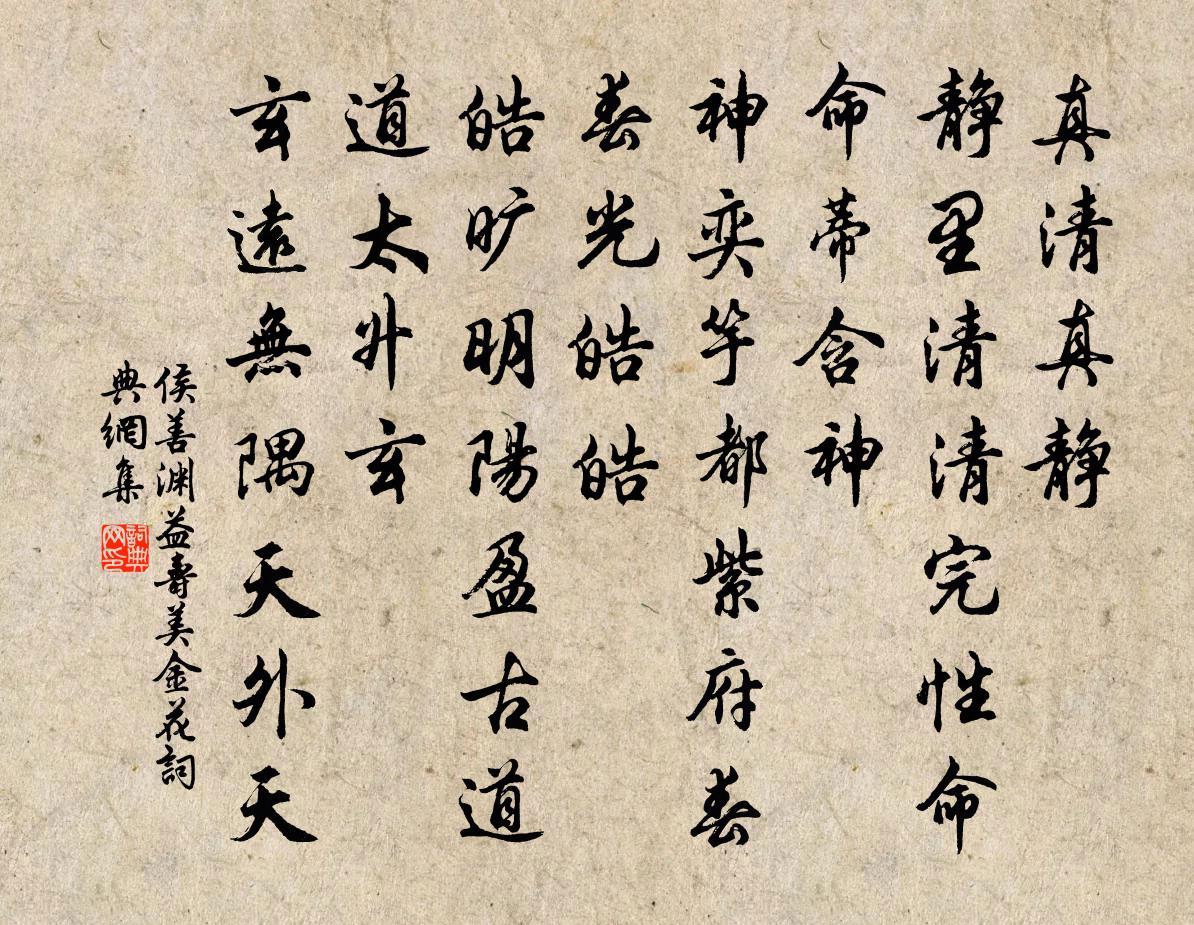 真清真静
静里清清完性命
命蒂含神
神奕竽都紫府春
春光皓皓
皓旷明陽盈古道
道太升玄
玄遠無隅天外天
侯善渊益壽美金花詞
典網集
詞典网印